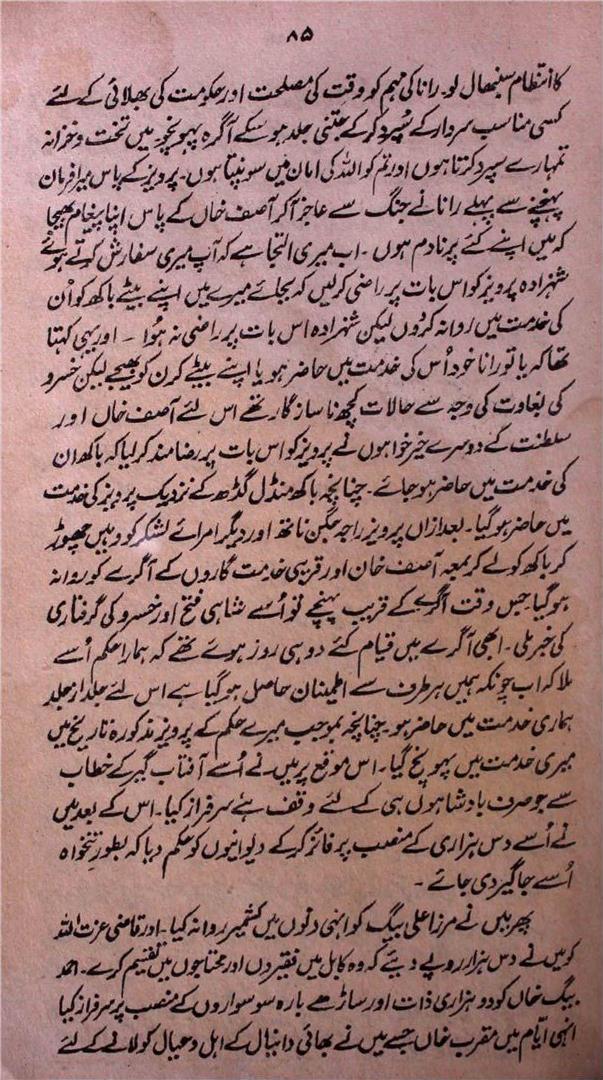 ۸۵
کا انتظام سنبھال لو۔ رانا کی مہم کو وقت کی مصلحت اور حکومت کی بھلائی کے لئے
کسی مناسب سردار کے سپرد کر کے جتنی جلد ہو سکے آگرہ پہونچو۔ میں تخت و خزانہ
تمہارے سپرد کرتا ہوں اور تم کو اللہ کی امان میں سونپتا ہوں۔ پرویز کے پاس میرا فرمان
پہنچنے سے پہلے رانا نے جنگ سے عاجز آ کر آصف خاں کے پاس اپنا پیغام بھیجا
کہ میں اپنے کئے پر نادم ہوں۔ اب میری التجا ہے کہ آپ میری سفارش کرتے ہوئے
شہزادہ پرویز کو اس بات پر راضی کر لیں کہ بجائے میرے میں اپنے بیٹے باکھ کو اُن
کی خدمت میں روانہ کر دُوں لیکن شہزادہ اس بات پر راضی نہ ہوا ۔ اور یہی کہتا
تھا کہ یا تو رانا خود اُس کی خدمت میں حاضر ہو یا اپنے بیٹے کرن کو بھیجے لیکن خسرو
کی بغاوت کی وجہ سے حالات کچھ ناسازگار تھے اس لئے آصف خاں اور
سلطنت کے دوسرے خیر خواہوں نے پرویز کو اس بات پر رضا مند کر لیا کہ باکھ ان
کی خدمت میں حاضر ہو جائے۔ چنانچہ باکھ منڈل گڈھ کے نزدیک پرویز کی خدمت
میں حاضر ہو گیا۔ بعد ازاں پرویز راجہ جگن ناتھ اور دیگر امرائے لشکر کو وہیں چھوڑ
کر باکھ کو لے کر بمعہ آصف خان اور قریبی خدمت گاروں کے آگرے کو روانہ
ہو گیا۔ جس وقت آگرے کے قریب پہنچے تو اُسے شاہی فتح اور خسرو کی گرفتاری
کی خبر ملی۔ ابھی آگرے میں قیام کئے دو ہی روز ہوئے تھے کہ ہمارا حکم اُسے
ملا کہ اب چونکہ ہمیں ہر طرف سے اطمینان حاصل ہو گیا ہے اس لئے جلد از جلد
ہماری خدمت میں حاضر ہو۔ چنانچہ بموجب میرے حکم کے پرویز مذکورہ تاریخ میں
میری خدمت میں پہونچ گیا۔ اس موقع پر میں نے اُسے آفتاب گیر کے خطاب
سے جو صرف بادشاہوں ہی کے لئے وقف ہے سرفراز کیا۔ اس کے بعد میں
نے اُسے دس ہزاری کے منصب پر فائز کر کے دیوانیوں کو حکم دیا کہ بطور تنخواہ
اُسے جاگیر دی جائے ۔
پھر میں نے مرزا علی بیگ کو انہی دنوں میں کشمیر روانہ کیا۔ اور قاضی عزت اللہ
کو میں نے دس ہزار روپے دیئے کہ وہ کابل میں فقیروں اور محتاجوں میں تقسیم کرے۔ احمد
بیگ خاں کو دو ہزاری ذات اور ساڑھے بارہ سو سواروں کے منصب پر سرفراز کیا
انہی ایّام میں مقرب خاں جسے میں نے بھائی دانیال کے اہل و عیال کو لانے کے لئے